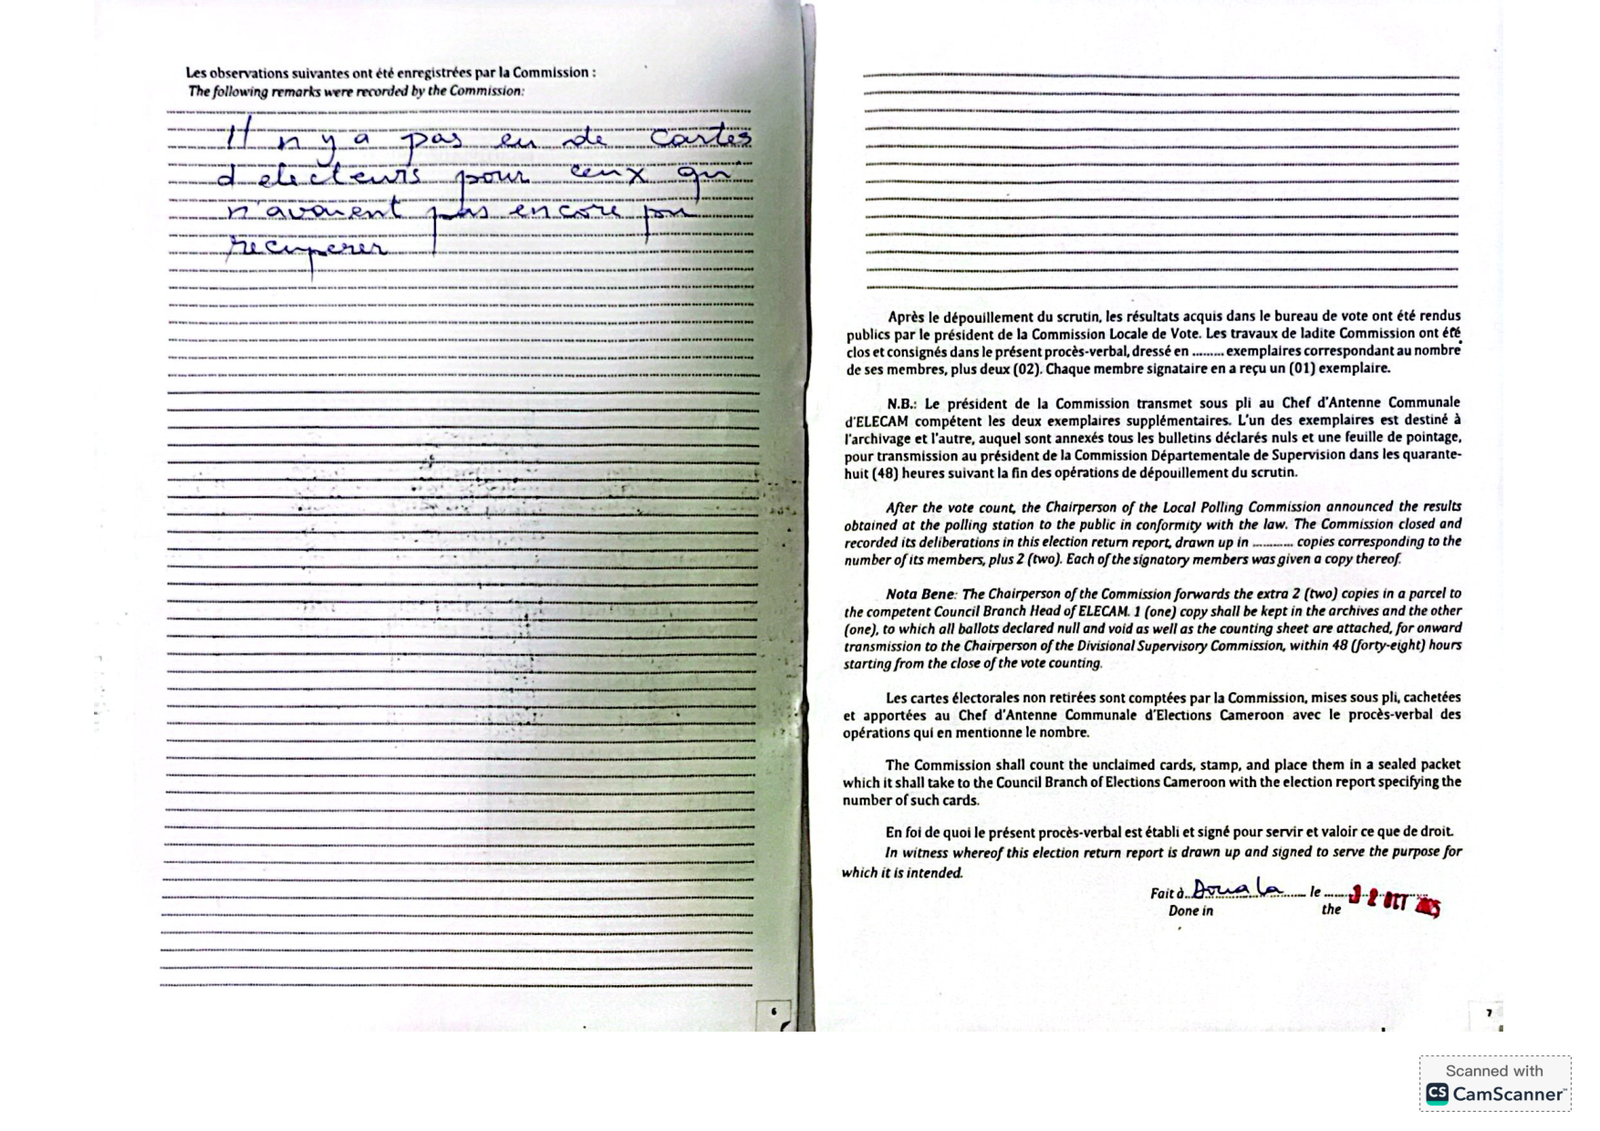 Les observations suivantes ont été enregistrées par la Commission :
The following remarks were recorded by the Commission:
Il n y a pas eu de cartes
d electeurs pour ceux qui
n'avaient pas encore pu
recuperer
6
Après le dépouillement du scrutin, les résultats acquis dans le bureau de vote ont été rendus
publics par le président de la Commission Locale de Vote. Les travaux de ladite Commission ont été
clos et consignés dans le présent procès-verbal, dressé en ......... exemplaires correspondant au nombre
de ses membres, plus deux (02). Chaque membre signataire en a reçu un (01) exemplaire.
N.B.: Le président de la Commission transmet sous pli au Chef d'Antenne Communale
d'ELECAM compétent les deux exemplaires supplémentaires. L'un des exemplaires est destiné à
l'archivage et l'autre, auquel sont annexés tous les bulletins déclarés nuls et une feuille de pointage,
pour transmission au président de la Commission Départementale de Supervision dans les quarante-
huit (48) heures suivant la fin des opérations de dépouillement du scrutin.
After the vote count, the Chairperson of the Local Polling Commission announced the results
obtained at the polling station to the public in conformity with the law. The Commission closed and
recorded its deliberations in this election return report, drawn up in ........... copies corresponding to the
number of its members, plus 2 (two). Each of the signatory members was given a copy thereof.
Nota Bene: The Chairperson of the Commission forwards the extra 2 (two) copies in a parcel to
the competent Council Branch Head of ELECAM. 1 (one) copy shall be kept in the archives and the other
(one), to which all ballots declared null and void as well as the counting sheet are attached, for onward
transmission to the Chairperson of the Divisional Supervisory Commission, within 48 (forty-eight) hours
starting from the close of the vote counting.
Les cartes électorales non retirées sont comptées par la Commission, mises sous pli, cachetées
et apportées au Chef d'Antenne Communale d'Elections Cameroon avec le procès-verbal des
opérations qui en mentionne le nombre.
The Commission shall count the unclaimed cards, stamp, and place them in a sealed packet
which it shall take to the Council Branch of Elections Cameroon with the election report specifying the
number of such cards.
En foi de quoi le présent procès-verbal est établi et signé pour servir et valoir ce que de droit.
In witness whereof this election return report is drawn up and signed to serve the purpose for
which it is intended.
Fait à Douala le OCT
Done in the
7
Scanned with
CS CamScanner